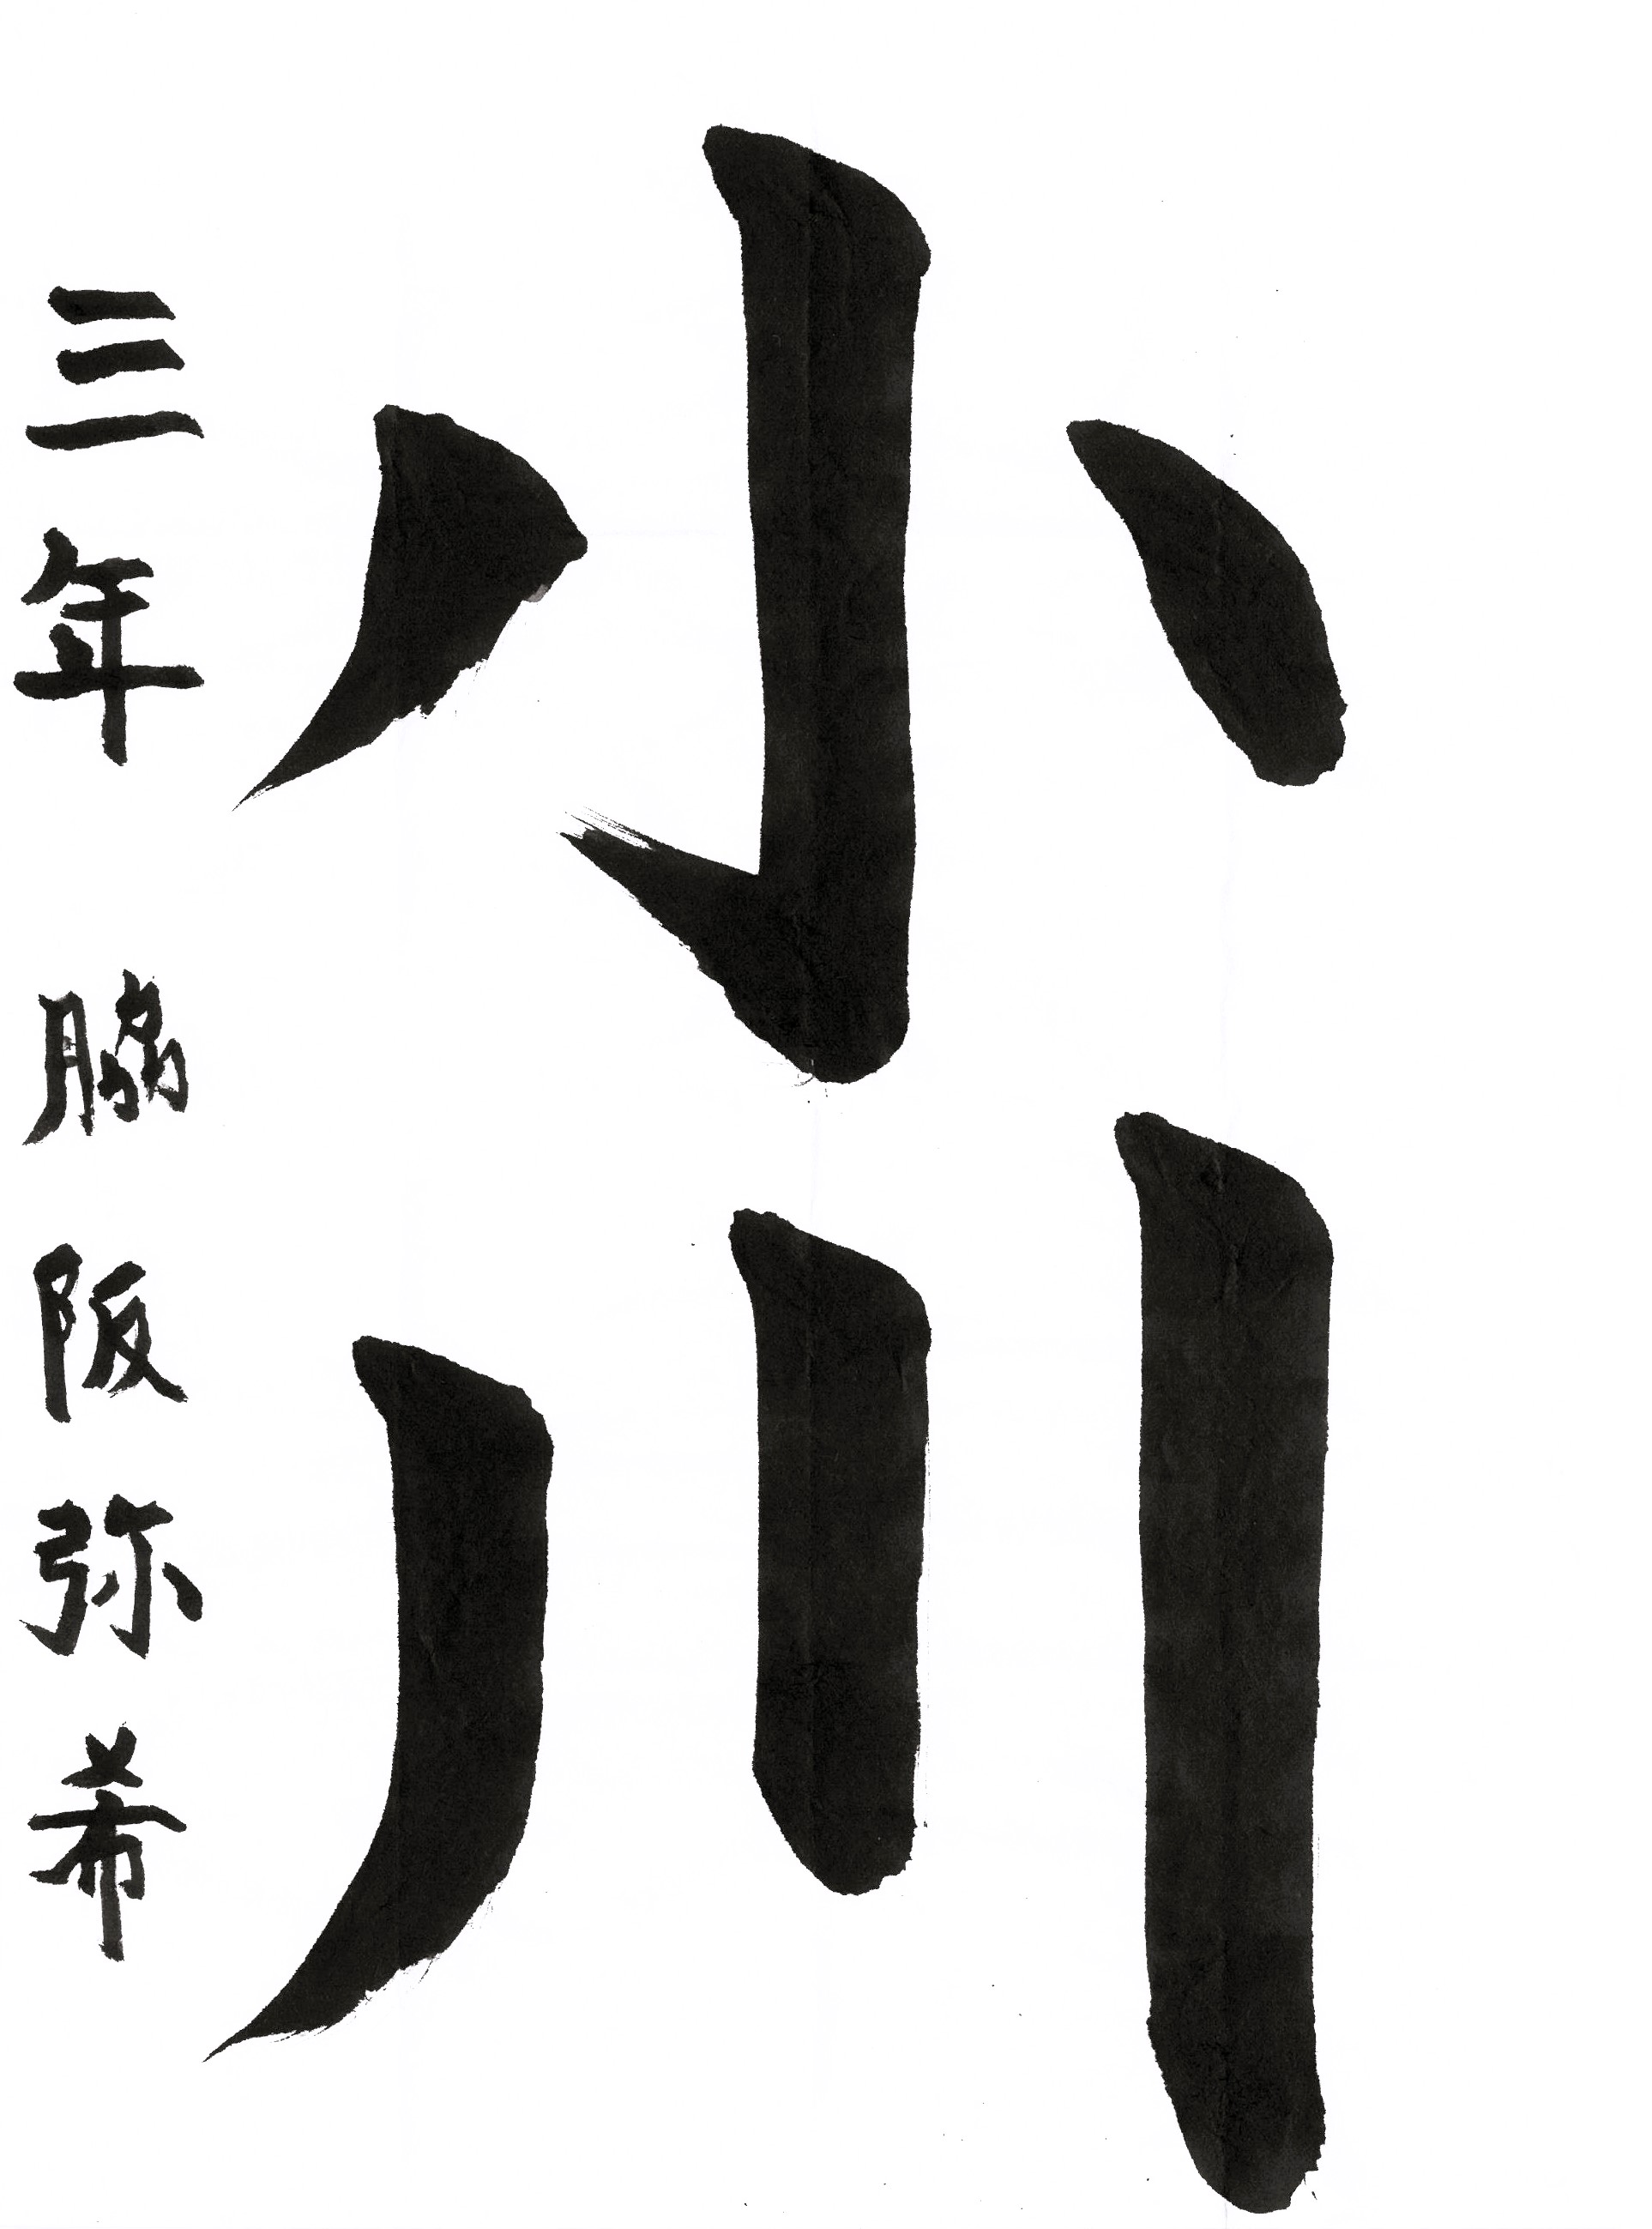 小川
三年 脇阪弥希